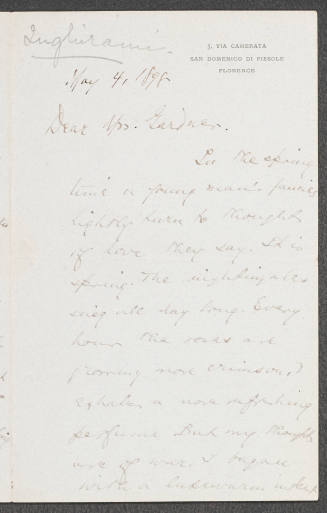 Inghirami.
5, VIA CAMERATA
SAN DOMENICO DI FIESOLE
FLORENCE
May 4, 1898
Dear Mrs. Gardner.
In the spring
time a young man's fancies
lightly turn to thoughts
of love they say. It is
spring. The nightingales
sing all day long. Every
hour the roses are
growing more crimson, &
exhale a more refreshing
perfume. But my thoughts
are of war. I began
with a lukewarm